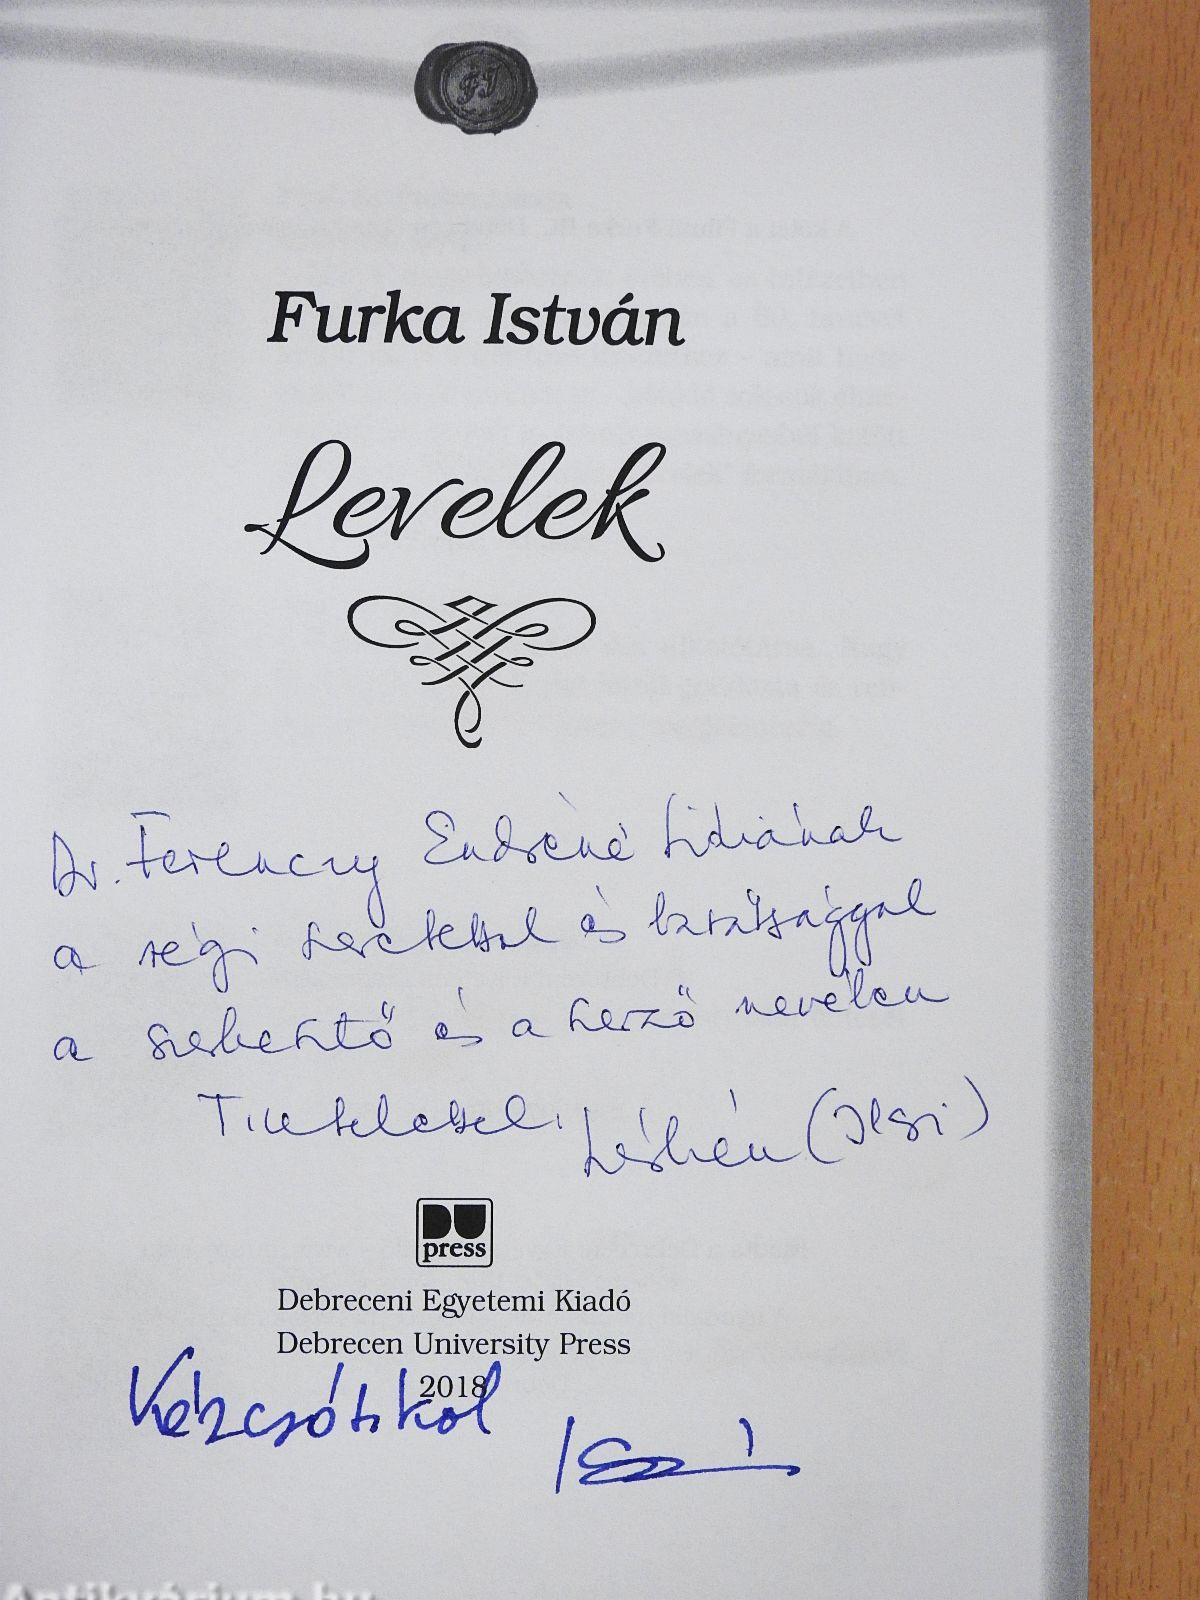 FI
Furka István
Levelek
Dr. Ferenczy Endréné Lídiának
a régi szeretettel és barátsággal
a szerkesztő és a szerző nevében
Tisztelettel:
(Ilsi)
DU
press
Debreceni Egyetemi Kiadó
Debrecen University Press
2018
Kézcsókkal
Antikvárium.hu